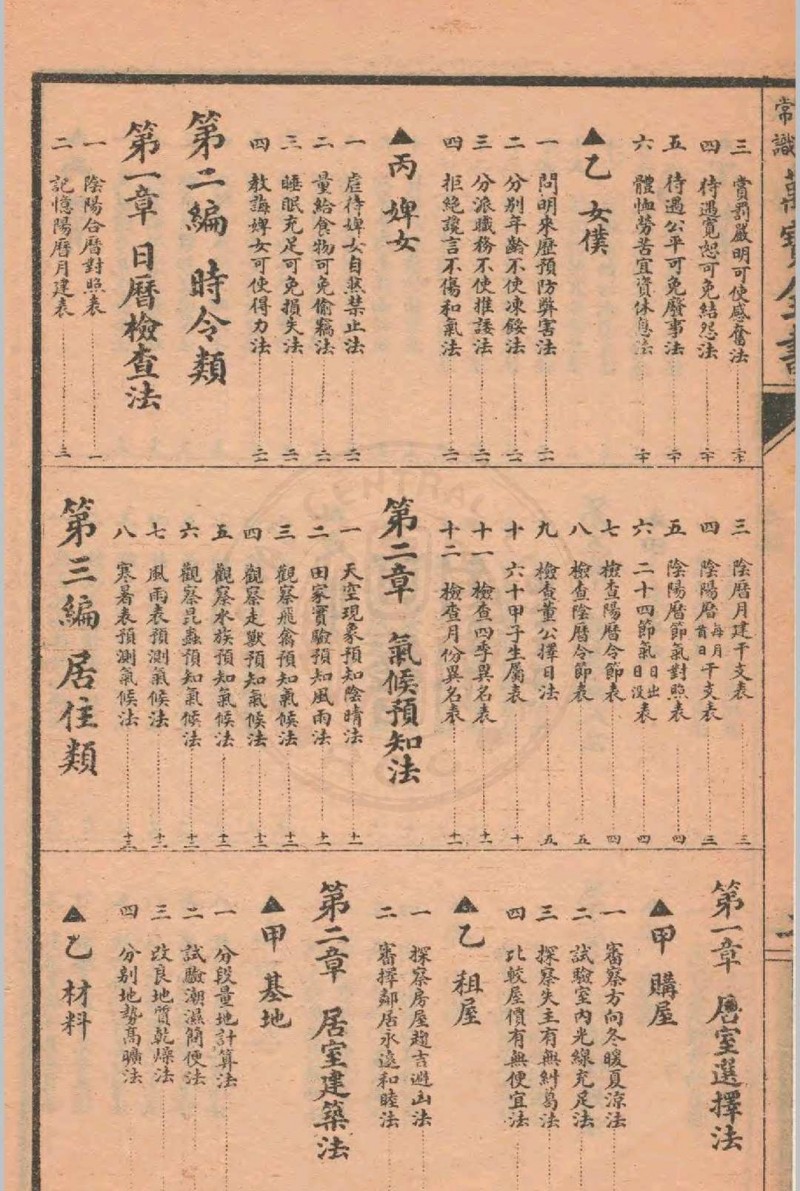 常識萬寶全書
三 賞罰嚴明可使感奮法 二十
四 待遇寬恕可免結怨法 二十
五 待遇公平可免廢事法 二十
六 體恤勞苦宜資休息法 二十
▲乙 女僕
一 問明來歷預防弊害法 二一
二 分别年齡不使凍餒法 二一
三 分派職務不使推諉法 二一
四 拒絶讒言不傷和氣法 二一
▲丙 婢女
一 虐待婢女自無禁止法 二一
二 量給食物可免偷竊法 二一
三 睡眠充足可免損失法 二一
四 教誨婢女可使得力法 二一
第二編 時令類
第一章 日曆檢查法
一 陰陽合曆對照表 一
二 記憶陽曆月建表 三
三 陰曆月建干支表 三
四 陰陽曆每月首日干支表 三
五 陰陽曆節氣對照表 四
六 二十四節氣日出日沒表 四
七 檢查陽曆令節表 四
八 檢查陰曆令節表 五
九 檢查董公擇日法 五
十 六十甲子生屬表 十
十一 檢查四季異名表 十一
十二 檢查月份異名表 十一
第二章 氣候預知法
一 天空現象預知陰晴法 十一
二 田家實驗預知風雨法 十一
三 觀察飛禽預知氣候法 十二
四 觀察走獸預知氣候法 十二
五 觀察水族預知氣候法 十二
六 觀察昆蟲預知氣候法 十二
七 風雨表預測氣候法 十二
八 寒暑表預測氣候法 十三
第三編 居住類
第一章 居室選擇法
▲甲 購屋
一 審察方向冬暖夏涼法
二 試驗室内光線充足法
三 探察失主有無糾葛法
四 比較屋價有無便宜法
▲乙 租屋
一 探察房屋趨吉避凶法
二 審擇鄰居永遠和睦法
第二章 居室建築法
▲甲 基地
一 分段量地計算法
二 試驗潮濕簡便法
三 改良地質乾燥法
四 分别地勢高曠法
▲乙 材料
CENTRAL